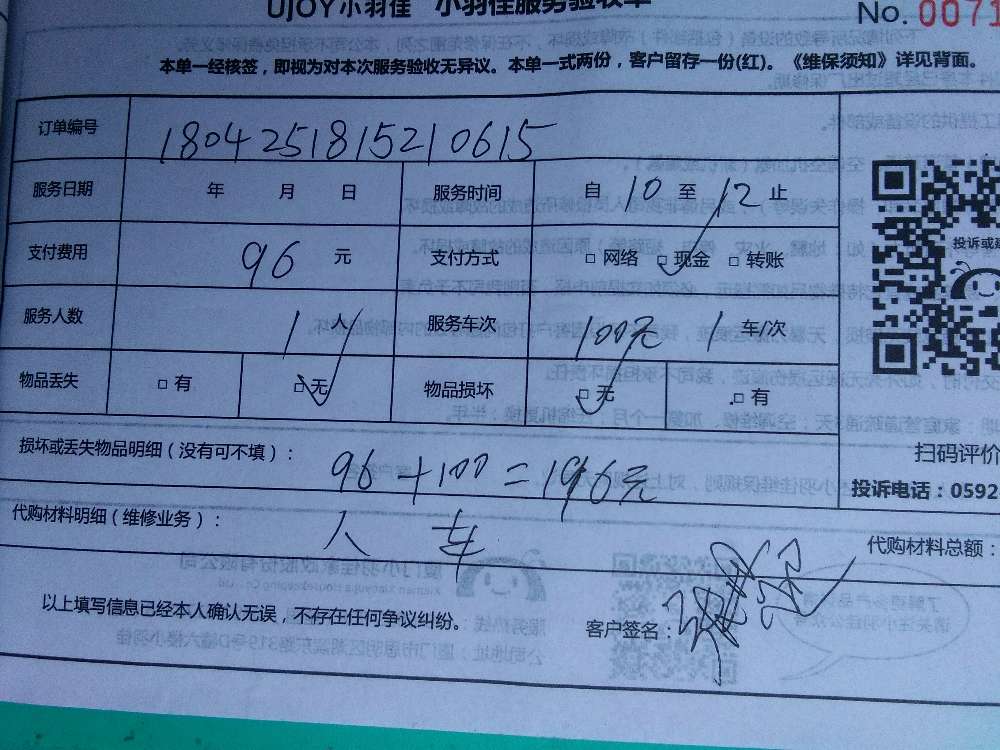 UJOY小羽佳 小羽佳服务验收单
No. 0071
本单一经核签，即视为对本次服务验收无异议。本单一式两份，客户留存一份(红)。《维保须知》详见背面。
订单编号 1804251815210615
服务日期 年 月 日 服务时间 自 10 至 12 止
支付费用 96 元 支付方式 □ 网络 □ 现金 □ 转账
投诉或建
服务人数 1 人 服务车次 100元 1 车/次
物品丢失 □ 有 □ 无 物品损坏 □ 无 □ 有
扫码评价
损坏或丢失物品明细（没有可不填）： 96+100=196元
投诉电话：0592
代购材料明细（维修业务）： 人 车
代购材料总额：
以上填写信息已经本人确认无误，不存在任何争议纠纷。
客户签名：